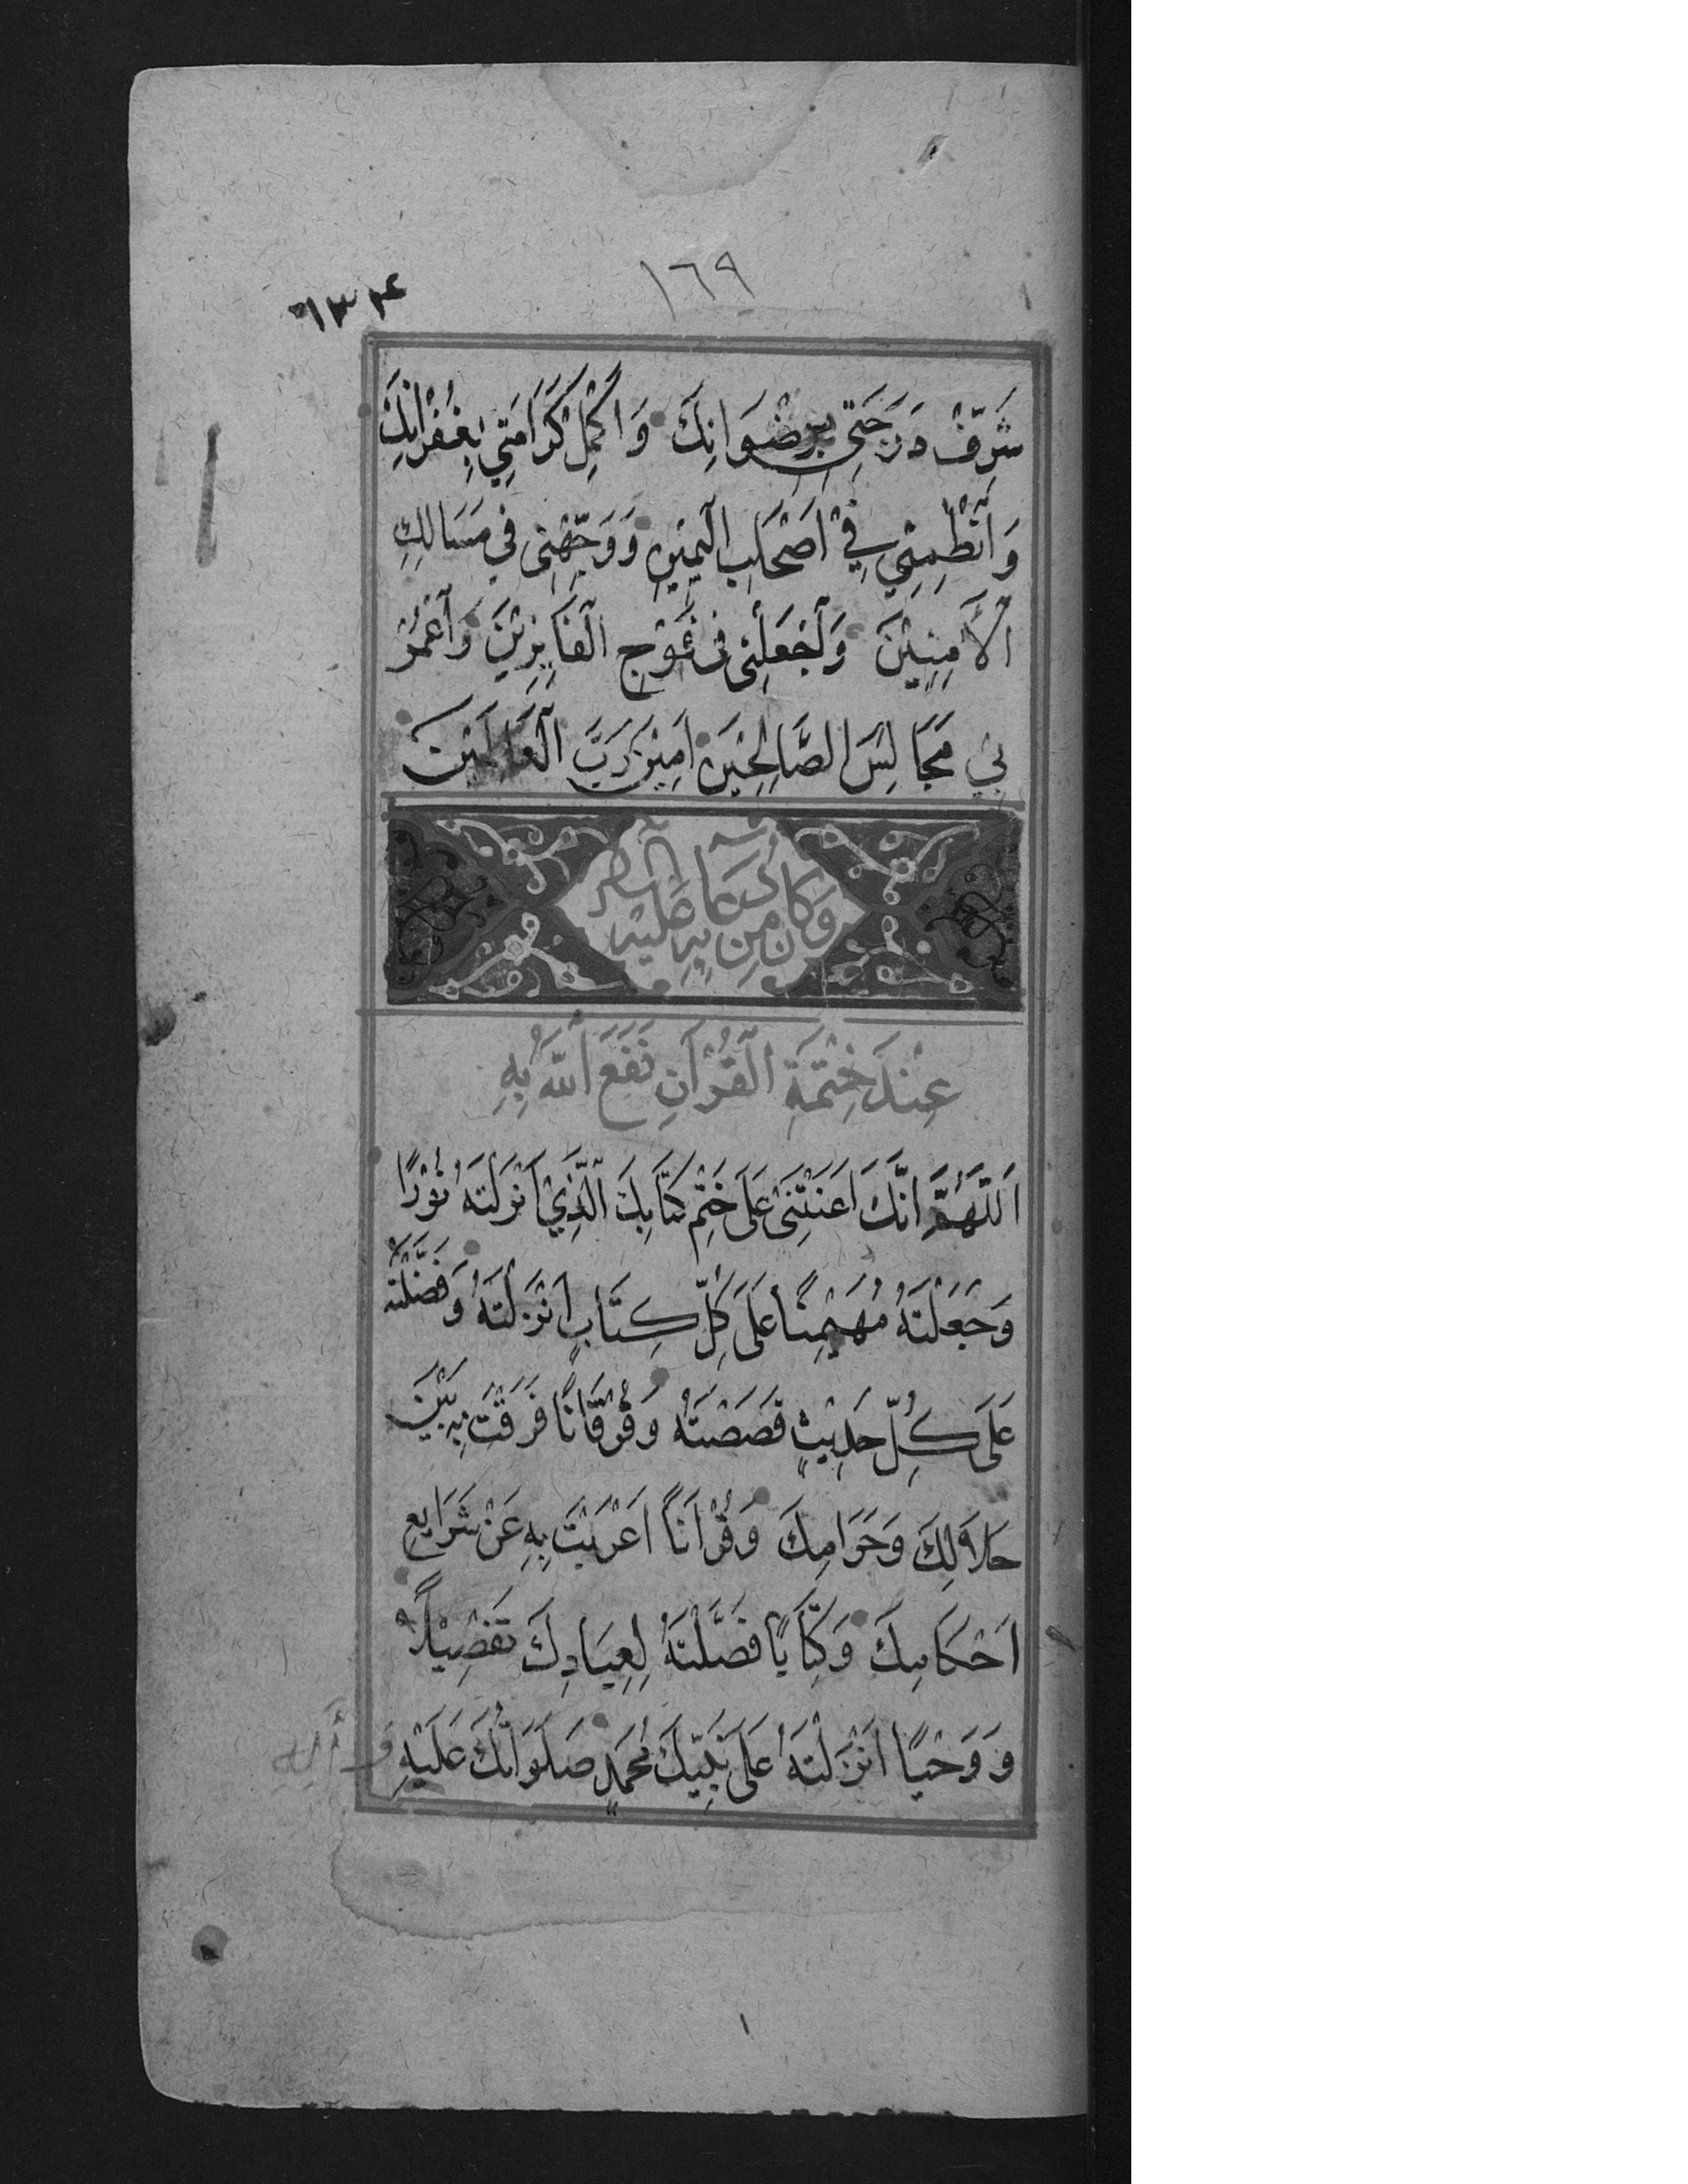 ١٦٩
٦٣٤
شَرِّفْ دَرَجَتِي بِرِضْوَانِكَ وَاَكْمِلْ كَرَامَتِي بِغُفْرَانِكَ
وَانْظِمْنِي فِي اَصْحَابِ الْيَمِيْنِ وَوَجِّهْنِي فِي مَسَالِكِ
الْاٰمِنِيْنَ وَاجْعَلْنِي فِي فَوْجِ الْفَايِزِيْنَ وَاعْمُرْ
بِي مَجَالِسَ الصَّالِحِيْنَ اٰمِيْنَ رَبَّ الْعَالَمِيْنَ
وَكَانَ مِنْ دُعَآئِهِ عَلَيْهِ السَّلَامُ
عِنْدَ خِتْمَةِ الْقُرْاٰنِ نَفَعَ اللّٰهُ بِهِ
اَللّٰهُمَّ اِنَّكَ اَعَنْتَنِي عَلَى خَتْمِ كِتَابِكَ الَّذِيْ اَنْزَلْتَهُ نُوْرًا
وَجَعَلْتَهُ مُهَيْمِنًا عَلَى كُلِّ كِتَابٍ اَنْزَلْتَهُ وَفَضَّلْتَهُ
عَلَى كُلِّ حَدِيْثٍ قَصَصْتَهُ وَفُرْقَانًا فَرَقْتَ بِهِ بَيْنَ
حَلَالِكَ وَحَرَامِكَ وَقُرْاٰنًا اَعْرَبْتَ بِهِ عَنْ شَرَايِعِ
اَحْكَامِكَ وَكِتَابًا فَصَّلْتَهُ لِعِبَادِكَ تَفْصِيْلًا
وَوَحْيًا اَنْزَلْتَهُ عَلَى نَبِيِّكَ مُحَمَّدٍ صَلَوَاتُكَ عَلَيْهِ وَأٰلِهِ